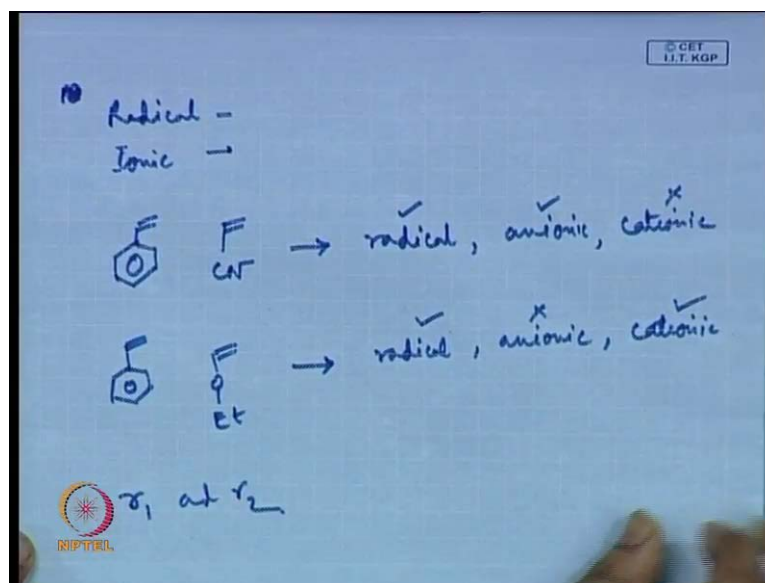 © CET
I.I.T. KGP
Radical -
Ionic →
CN → radical, anionic, cationic
O → radical, anionic, cationic
Et
r1 and r2
NPTEL